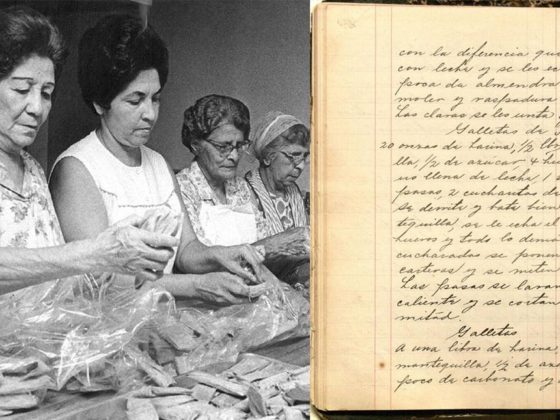 con la diferencia que
con leche y se les ec
pasa da almendra
moler y raspadura
Las claras se les unta y
Galletas de
20 onzas de harina, 1/2 lb
lla, 1/2 de azúcar 4 hue
llena de leche, 1
pasas, 2 cucharitas de
se derrite y bate bien
tequilla, se le echa el
huevos y todo lo demás
cucharadas se ponen
y se meten
Las pasas se lavan
caliente y se cortan
mitad.
Galletas
A una libra de harina
mantequilla, 1/2 de azú
poco de carbonato y